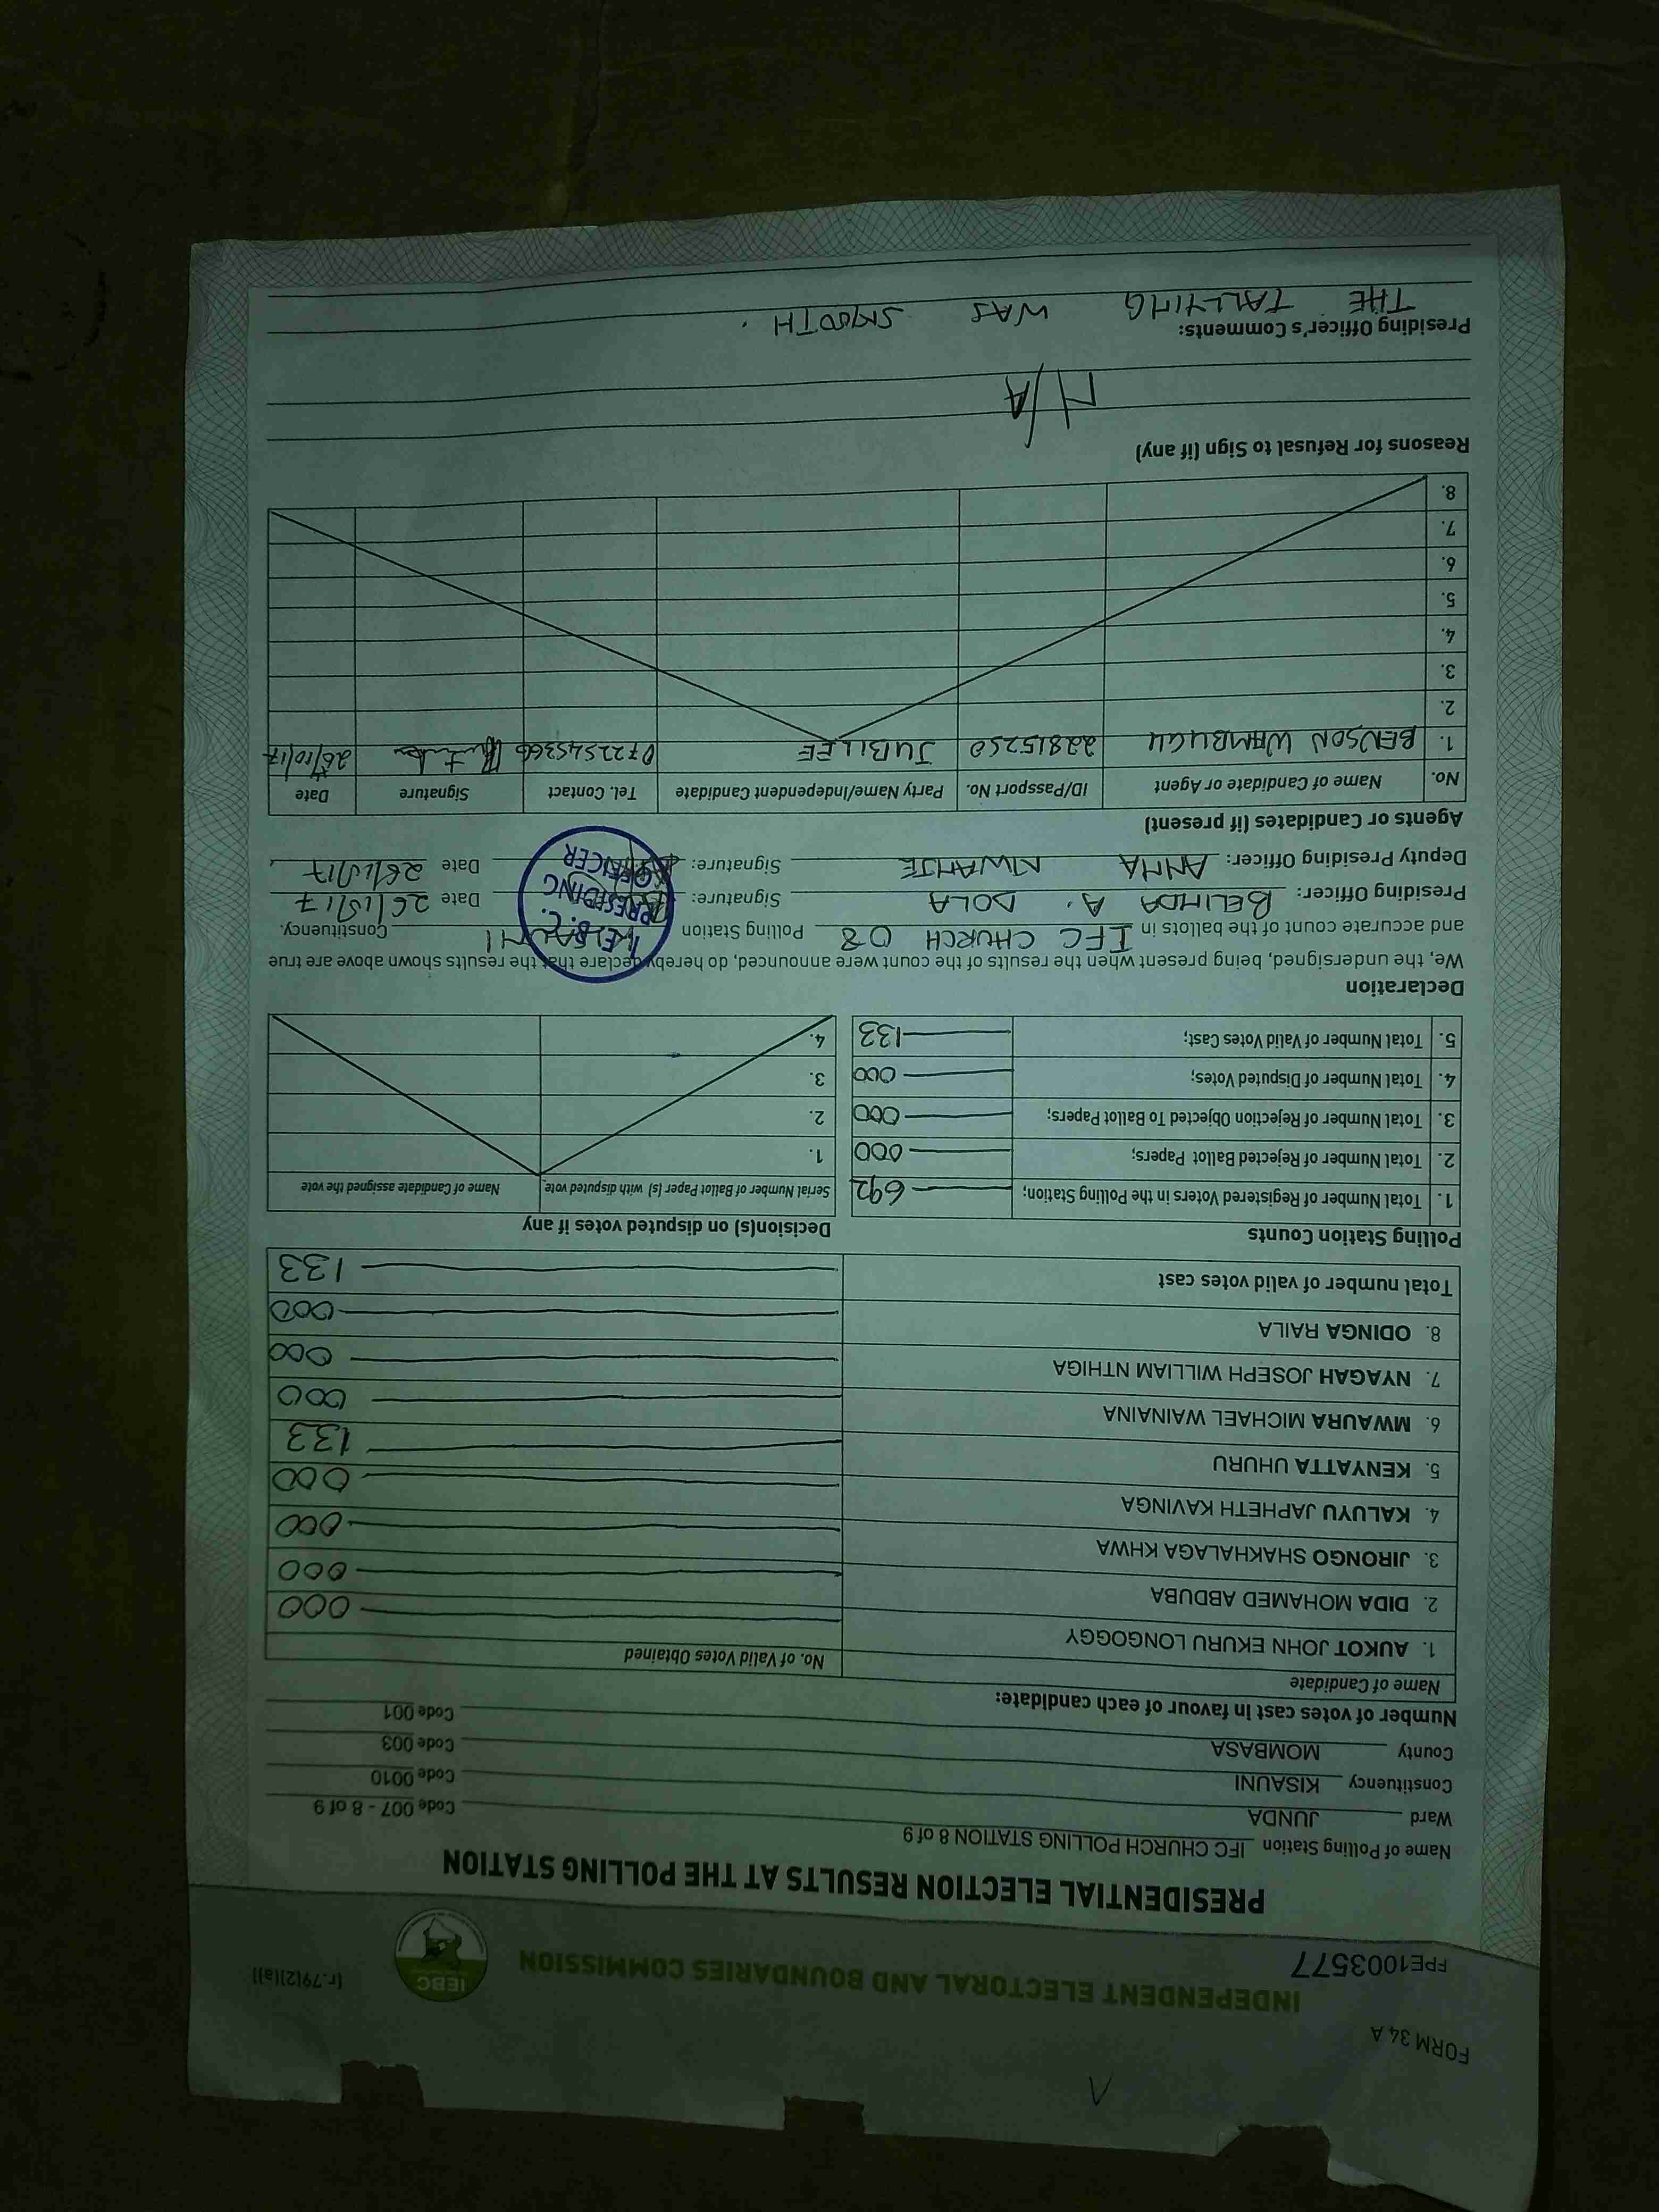 FORM 34 A
INDEPENDENT ELECTORAL AND BOUNDARIES COMMISSION
IEBC
(r.79(2)(a))
FPE1003577
PRESIDENTIAL ELECTION RESULTS AT THE POLLING STATION
Name of Polling Station IFC CHURCH POLLING STATION 8 of 9
Ward JUNDA Code 007 - 8 of 9
Constituency KISAUNI Code 0010
County MOMBASA Code 003
Code 001
Number of votes cast in favour of each candidate:
Name of Candidate No. of Valid Votes Obtained
1. AUKOT JOHN EKURU LONGOGGY 000
2. DIDA MOHAMED ABDUBA 000
3. JIRONGO SHAKHALAGA KHWA 000
4. KALUYU JAPHETH KAVINGA 000
5. KENYATTA UHURU 133
6. MWAURA MICHAEL WAINAINA 000
7. NYAGAH JOSEPH WILLIAM NTHIGA 000
8. ODINGA RAILA 000
Total number of valid votes cast 133
Polling Station Counts
1. Total Number of Registered Voters in the Polling Station; 692
2. Total Number of Rejected Ballot Papers; 000
3. Total Number of Rejection Objected To Ballot Papers; 000
4. Total Number of Disputed Votes; 000
5. Total Number of Valid Votes Cast; 133
Decision(s) on disputed votes if any
Serial Number of Ballot Paper (s) with disputed vote Name of Candidate assigned the vote
1.
2.
3.
4.
Declaration
We, the undersigned, being present when the results of the count were announced, do hereby declare that the results shown above are true
and accurate count of the ballots in IFC CHURCH 08 Polling Station Constituency.
Presiding Officer: BELINDA A. DOLA Signature: Date 26/10/17
Deputy Presiding Officer: ANNA Signature: Date 26/10/17
I.E.B.C.
PRESIDING
OFFICER
Agents or Candidates (if present)
No. Name of Candidate or Agent ID/Passport No. Party Name/Independent Candidate Tel. Contact Signature Date
1. BENSON WAMBUGU 22815250 JUBILEE 0722545366 26/10/17
2.
3.
4.
5.
6.
7.
8.
Reasons for Refusal to Sign (if any)
N/A
Presiding Officer's Comments:
THE TALLYING WAS SMOOTH.